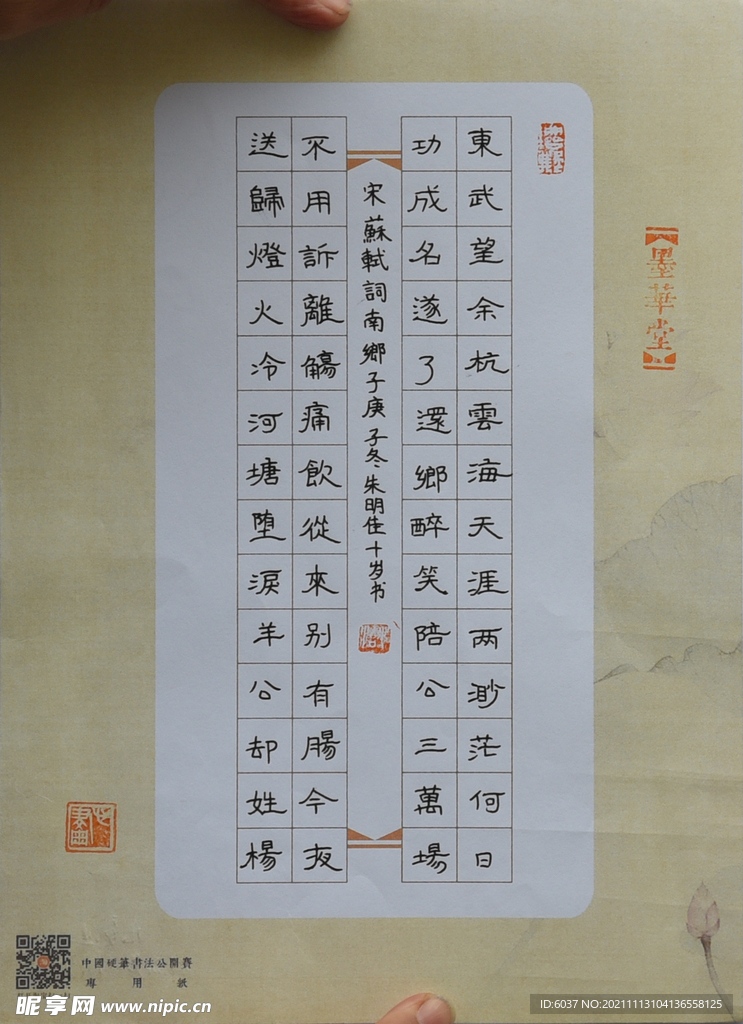 東武望余杭雲海天涯两渺茫何日
功成名遂了還鄉醉笑陪公三萬場
宋蘇軾詞南鄉子庚子冬朱明佳十岁书
不用訴離觴痛飲從來別有腸今夜
送歸燈火冷河塘堕淚羊公却姓楊
墨華堂
中國硬筆書法公開賽
專用紙
昵享网 www.nipic.cn
ID:6037 NO:20211113104136558125